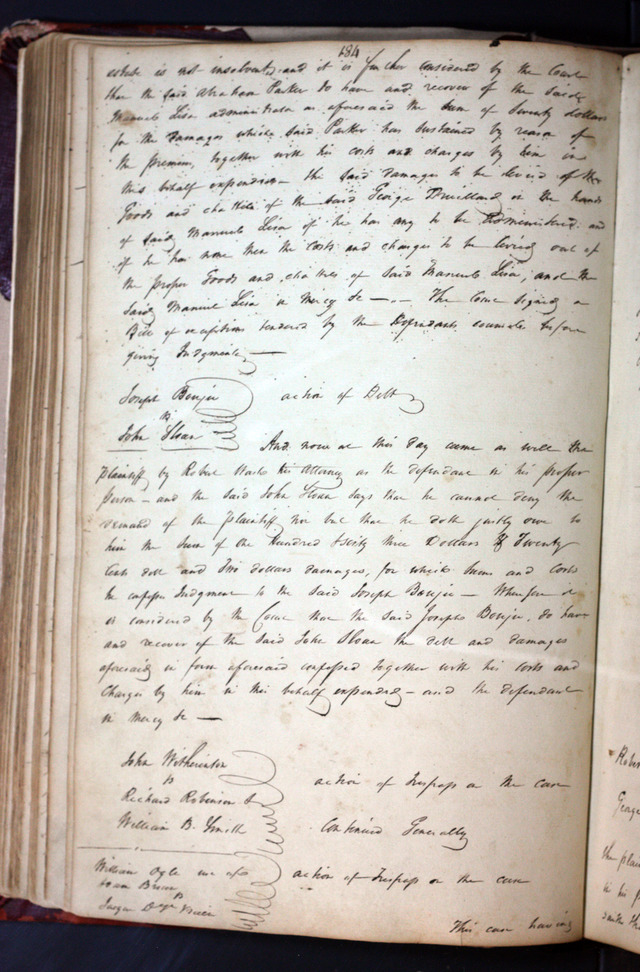 184
estate is not insolvent, and it is further considered by the Court
that the said Abraham Parker do have and recover of the said
Manuel Lisa administrator as aforesaid the sum of Seventy dollars
for the damages which said Parker has sustained by reason of
the premises, together with his costs and charges by him in
this behalf expended – the said damages to be levied of the
Goods and chattels of the said George in the hands
of said Manuel Lisa if he has any to be Administered and
if he has none then the costs and charges to be levied out of
the proper Goods and chattels of said Manuel Lisa, and the
said Manuel Lisa in Mercy &c —.— The Court signed a
Bill of exceptions tendered by the Defendants counsel before
giving Judgment —
Joseph action of Debt
vs
John Sloan
And now at this day came as well the
plaintiff by Robert his Attorney as the defendant in his proper
person – and the said John Sloan says that he cannot deny the
demand of the plaintiff nor but that he doth justly owe to
him the sum of One Hundred & sixty three Dollars & Twenty
Cents debt and dollars damages, for which sums and costs
he confesses Judgment to the said Joseph — Wherefore it
is considered by the Court that the said Joseph do have
and recover of the said John Sloan the debt and damages
aforesaid in form aforesaid confessed together with his costs and
Charges by him in this behalf expended – and the defendant
in Mercy &c —
John Witherinton
vs action of Trespass on the case
Richard Robinson &
William B. Smith Continued Generally
William Ogle action of Trespass on the case
vs
This case having
Rober
George
the plain
in his p